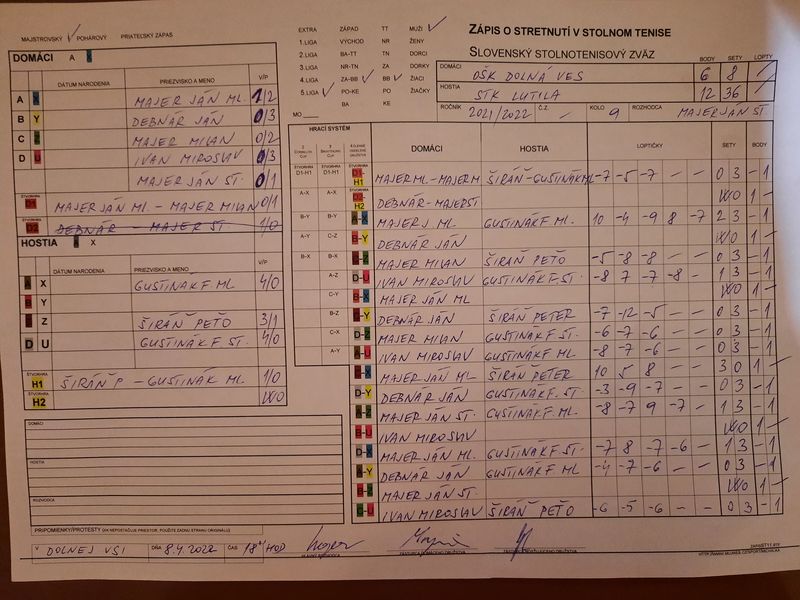 MAJSTROVSKÝ POHÁROVÝ PRIATEĽSKÝ ZÁPAS
DOMÁCI A X
DÁTUM NARODENIA PRIEZVISKO A MENO V/P
A X MAJER JÁN ML. 1/2
B Y DEBNÁR JÁN 0/3
C Z MAJER MILAN 0/2
D U IVAN MIROSLAV 0/3
MAJER JÁN ST. 0/1
ŠTVORHRA D1 MAJER JÁN ML. - MAJER MILAN 0/1
ŠTVORHRA D2 DEBNÁR - MAJER ST. 1/0
HOSTIA A X
DÁTUM NARODENIA PRIEZVISKO A MENO V/P
A X GUSTINÁK F. ML 4/0
B Y
Z ŠIRÁŇ PEŤO 3/1
D U GUSTINÁK F. ST. 4/0
ŠTVORHRA H1 ŠIRÁŇ P - GUSTINÁK ML. 1/0
ŠTVORHRA H2 WO
DOMÁCI
HOSTIA
ROZHODCA
PRIPOMIENKY/PROTESTY (AK NEPOSTAČUJE PRIESTOR, POUŽITE ZADNÚ STRANU ORIGINÁLU)
V DOLNEJ VSI DŇA 8.4.2022 ČAS 18 HOD
EXTRA ZÁPAD TT MUŽI
1.LIGA VÝCHOD NR ŽENY
2.LIGA BA-TT TN DORCI
3.LIGA NR-TN ZA DORKY
4.LIGA ZA-BB BB ŽIACI
5.LIGA PO-KE PO ŽIAČKY
MO BA KE
ZÁPIS O STRETNUTÍ V STOLNOM TENISE
SLOVENSKÝ STOLNOTENISOVÝ ZVÄZ
BODY SETY LOPTY
DOMÁCI OŠK DOLNÁ VES 6 8
HOSTIA STK LUTILA 12 36
ROČNÍK 2021/2022 Č.Z. - KOLO 9 ROZHODCA MAJER JÁN ST
HRACÍ SYSTÉM DOMÁCI HOSTIA LOPTIČKY SETY BODY
D1-H1 D1-H1 D1-H1 MAJER ML - MAJER M ŠIRÁŇ - GUSTINÁK ML -7 -5 -7 - - 0 3 - 1
A-X A-X D2-H2 DEBNÁR - MAJER ST WO 1 -
B-Y B-Y A-X MAJER J. ML GUSTINÁK F ML. 10 -4 -9 8 -7 2 3 - 1
A-Y C-Z B-Y DEBNÁR JÁN WO 1 -
B-X B-X C-Z MAJER MILAN ŠIRÁŇ PEŤO -5 -8 -8 - - 0 3 - 1
A-Z D-U IVAN MIROSLAV GUSTINÁK F. ST. -8 7 -7 -8 - 1 3 - 1
C-Y B-X MAJER JÁN ML WO 1 -
B-Z C-Y DEBNÁR JÁN ŠIRÁŇ PETER -7 -12 -5 - - 0 3 - 1
C-X D-Z MAJER MILAN GUSTINÁK F. ST. -6 -7 -6 - - 0 3 - 1
A-Y A-U IVAN MIROSLAV GUSTINÁK F ML -8 -7 -6 - - 0 3 - 1
-X MAJER JÁN ML ŠIRÁŇ PETER 10 5 8 - - 3 0 1 -
D-Y DEBNÁR JÁN GUSTINÁK F. ST. -3 -9 -7 - - 0 3 - 1
A-Z MAJER JÁN ST. GUSTINÁK F. ML -8 -7 9 -7 - 1 3 - 1
B-U IVAN MIROSLAV WO 1 -
D-X MAJER JÁN ML GUSTINÁK F. ST. -7 8 -7 -6 - 1 3 - 1
A-Y DEBNÁR JÁN GUSTINÁK F ML -4 -7 -6 - - 0 3 - 1
B-Z MAJER JÁN ST. WO 1 -
C-U IVAN MIROSLAV ŠIRÁŇ PEŤO -6 -5 -6 - - 0 3 - 1